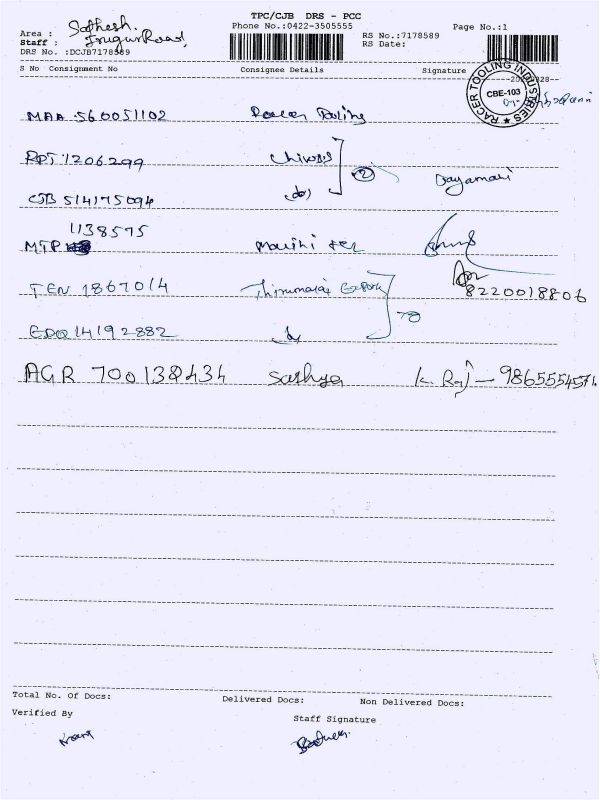 TPC/CJB DRS - PCC
Phone No.:0422-3505555
Page No.:1
Area : Sathesh.
Staff : Irugur Road,
RS No.:7178589
RS Date:
DRS No. :DCJB7178589
S No Consignment No Consignee Details Signature
RACER TOOLING INDUSTRIES
CBE-103
MAA 560051102 Racer Tooling
RPT 1206299
2
CJB 514175094 Dayamani
1138575
MTP
TEN 1867014 Thirumalai 8220018806
EDQ 14192882
AGR 700138434 Sathya K. Raj - 9865554574
Total No. Of Docs: Delivered Docs: Non Delivered Docs:
Verified By Staff Signature